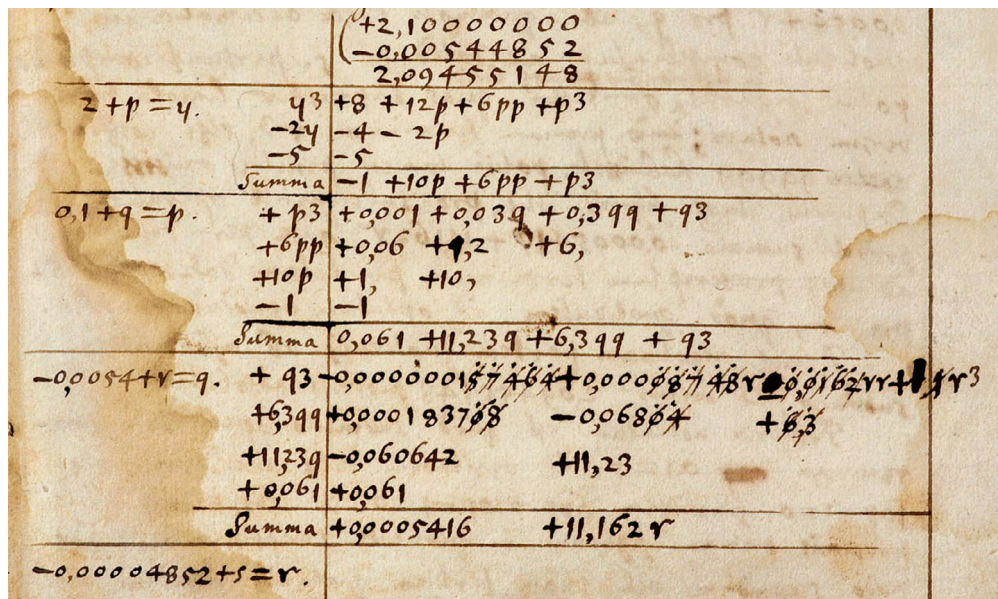 +2,10000000
-0,00544852
2,09455148
2+p=y. y3 +8 +12p+6pp+p3
-2y -4 - 2p
-5 -5
Summa -1 +10p +6pp +p3
0,1+q=p. + p3 +0,001 +0,03q +0,3qq +q3
+6pp +0,06 +1,2 +6,
+10p +1, +10,
-1 -1
Summa 0,061 +11,23q +6,3qq + q3
-0,0054+r=q. + q3 -0,000000157464 +0,00008748r -0,0162rr + r3
+6,3qq +0,000183708 -0,06804 +6,3
+11,23q -0,060642 +11,23
+0,061 +0,061
Summa +0,0005416 +11,162r
-0,00004852+s=r.